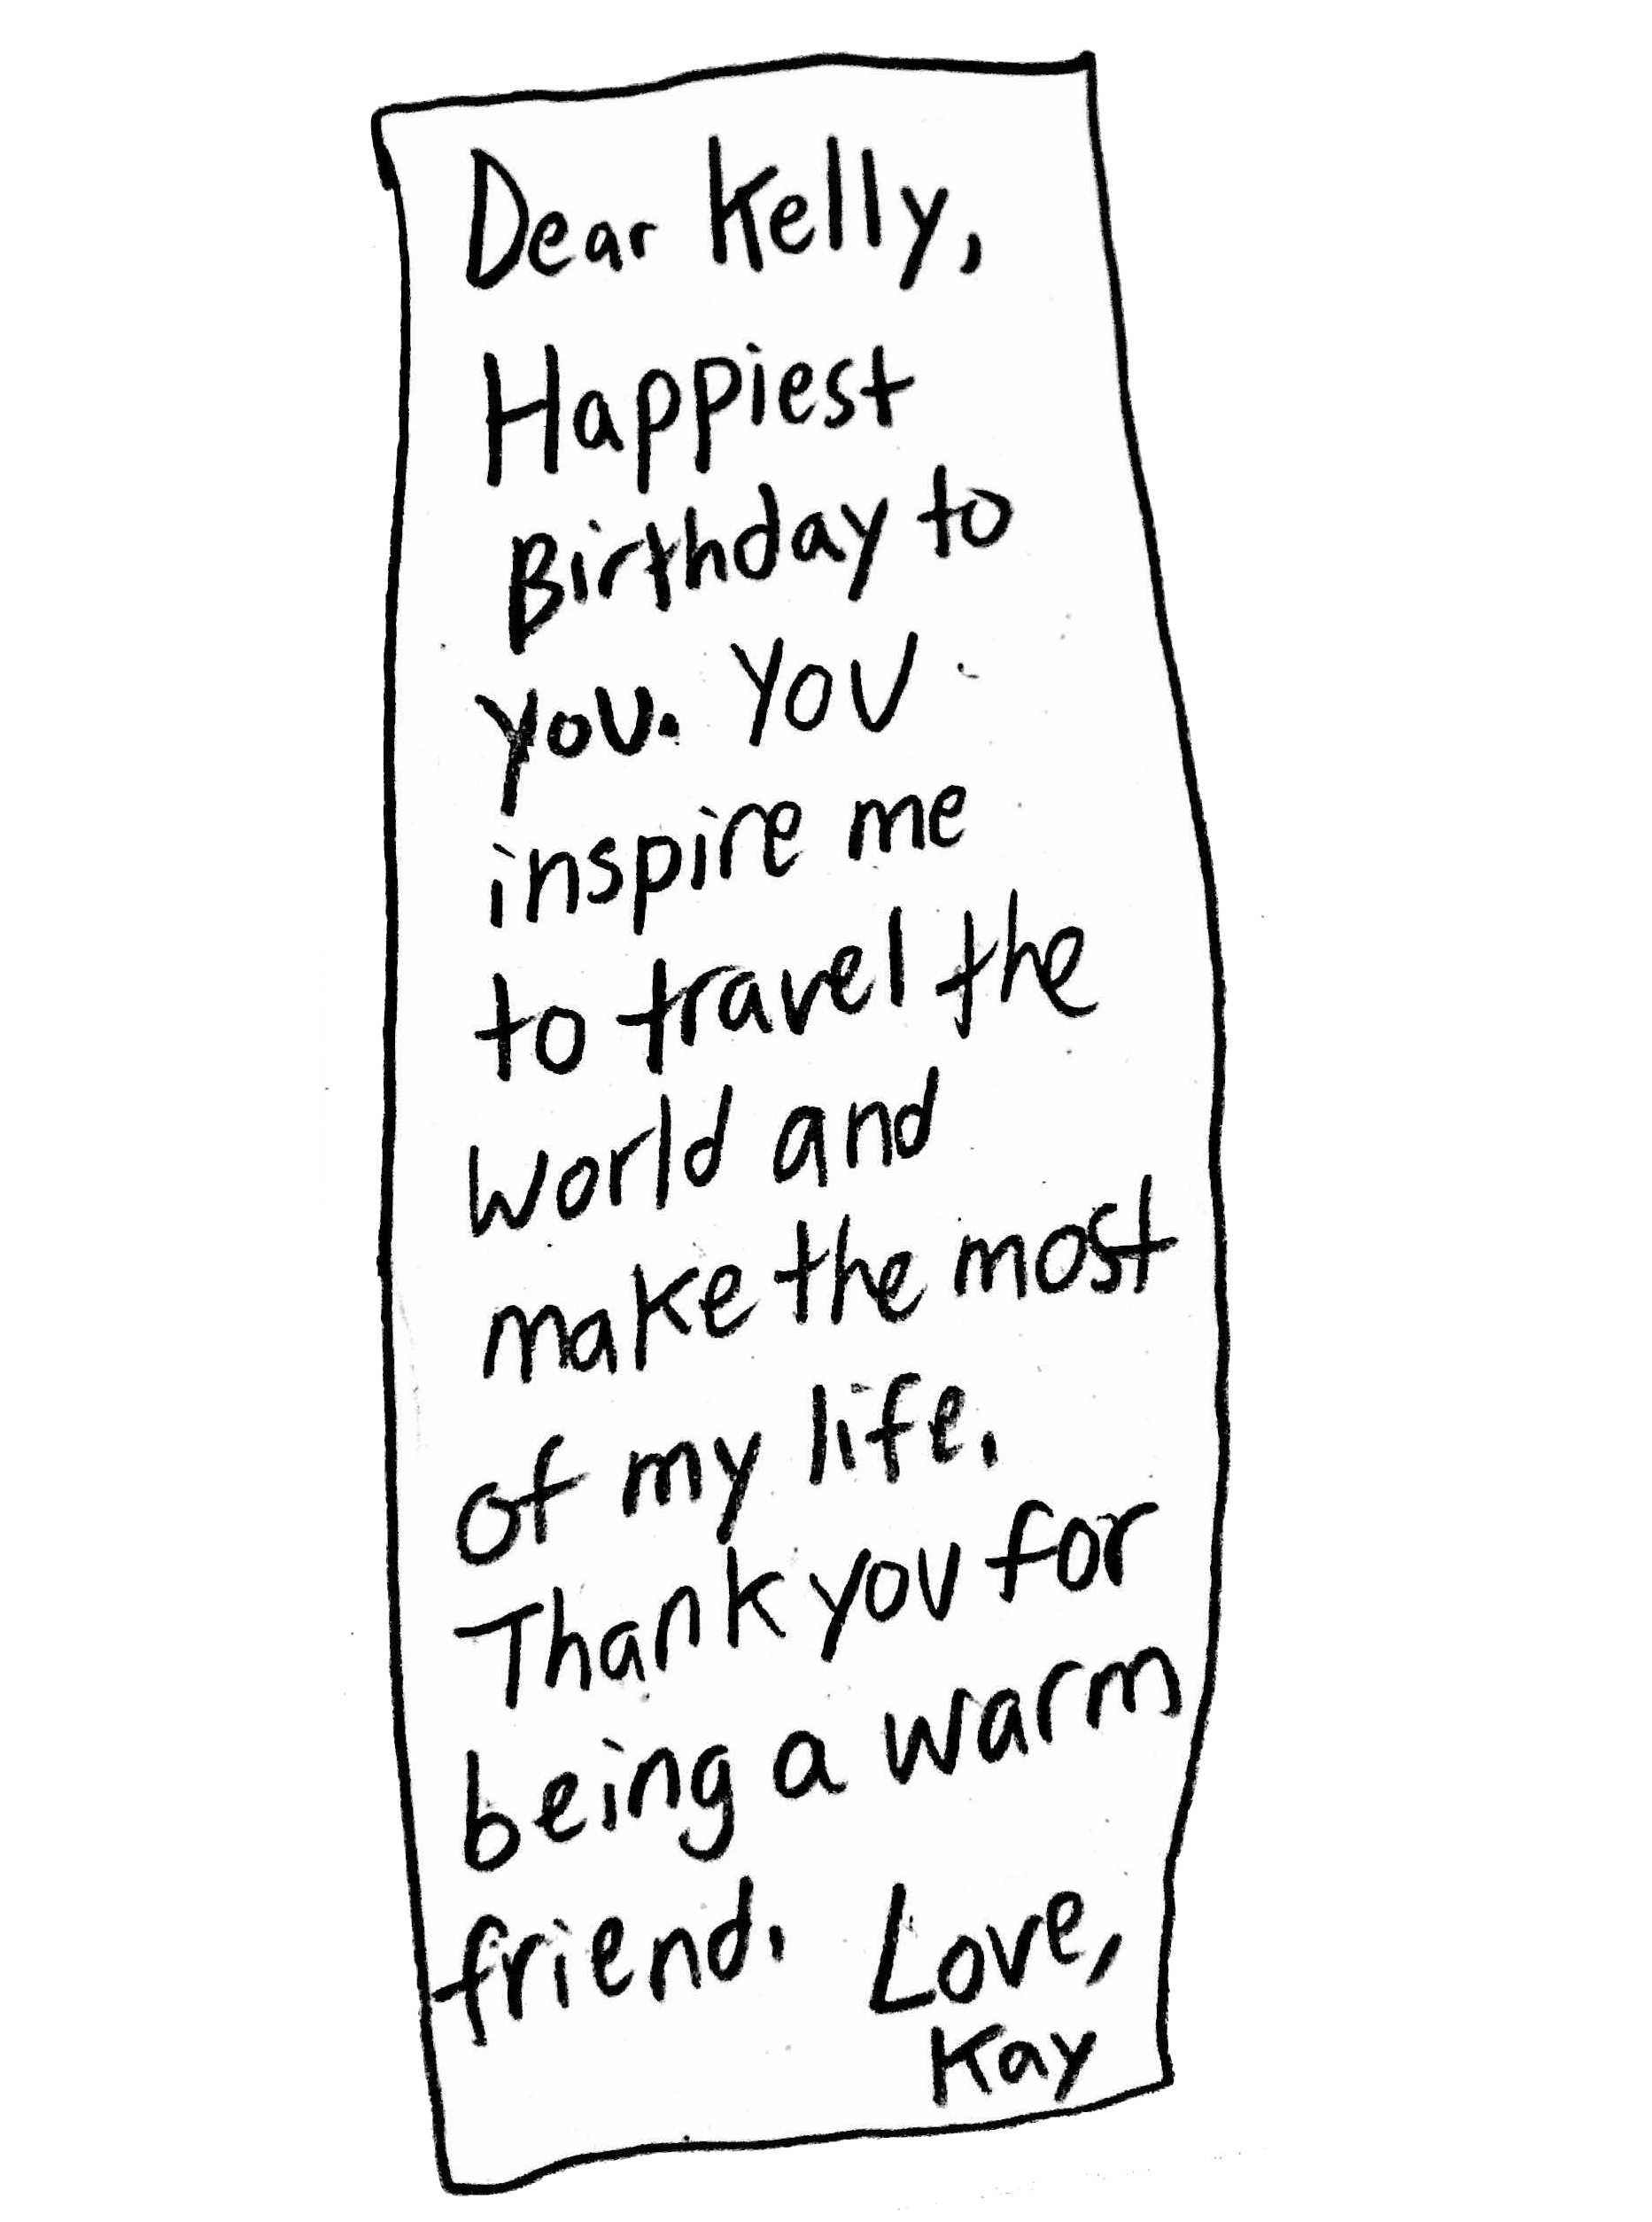 Dear Kelly,
Happiest
Birthday to
you. You
inspire me
to travel the
world and
make the most
of my life.
Thank you for
being a warm
friend. Love,
Kay